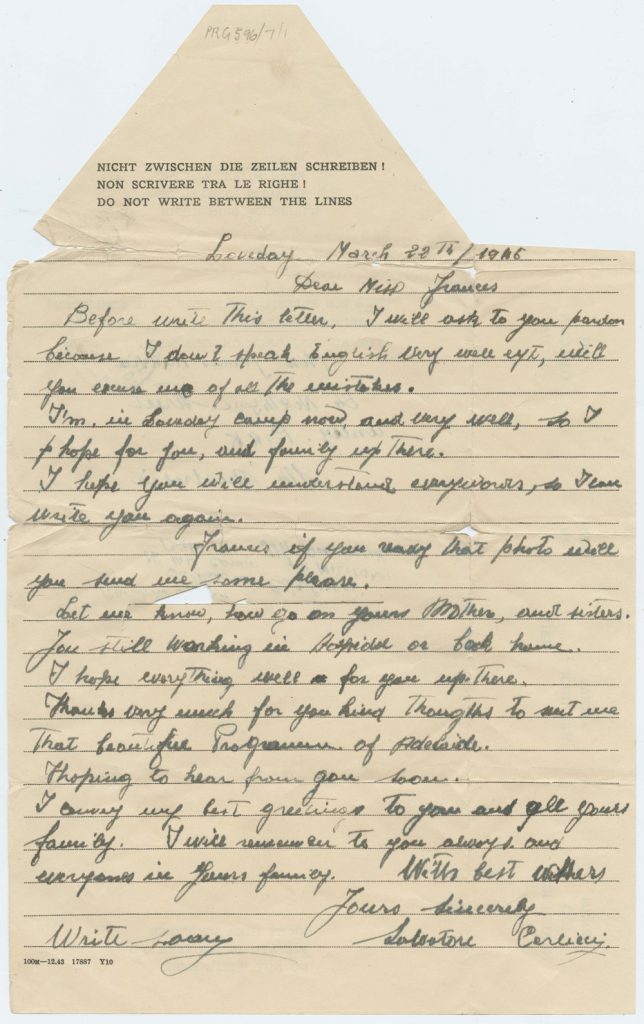 PRG 596/7/1
NICHT ZWISCHEN DIE ZEILEN SCHREIBEN!
NON SCRIVERE TRA LE RIGHE!
DO NOT WRITE BETWEEN THE LINES
Loveday March 22th/1946
Dear Miss Frances
Before write this letter, I will ask to you pardon
because I don't speak English very well eyt, will
you excuse me of all the mistakes.
I'm. in Loveday camp now, and very well, so I
hope for you, and family up there.
I hope you will understand everywords, so I can
write you again.
Frances if you ready that photo will
you send me some please.
Let me know, how go on yours Mother, and sisters.
You still working in Hospidal or back home.
I hope everything well for you up there.
Thanks very much for you kind thougths to me
that beautiful Programme of Adelaide.
Ihoping to hear from you soon.
I convey my best greetings to you and all yours
family. I will remember to you always and
everyones in yours family. With best wishes
Yours sincerely
Write soon Salvatore
100M—12.43 17887 Y10